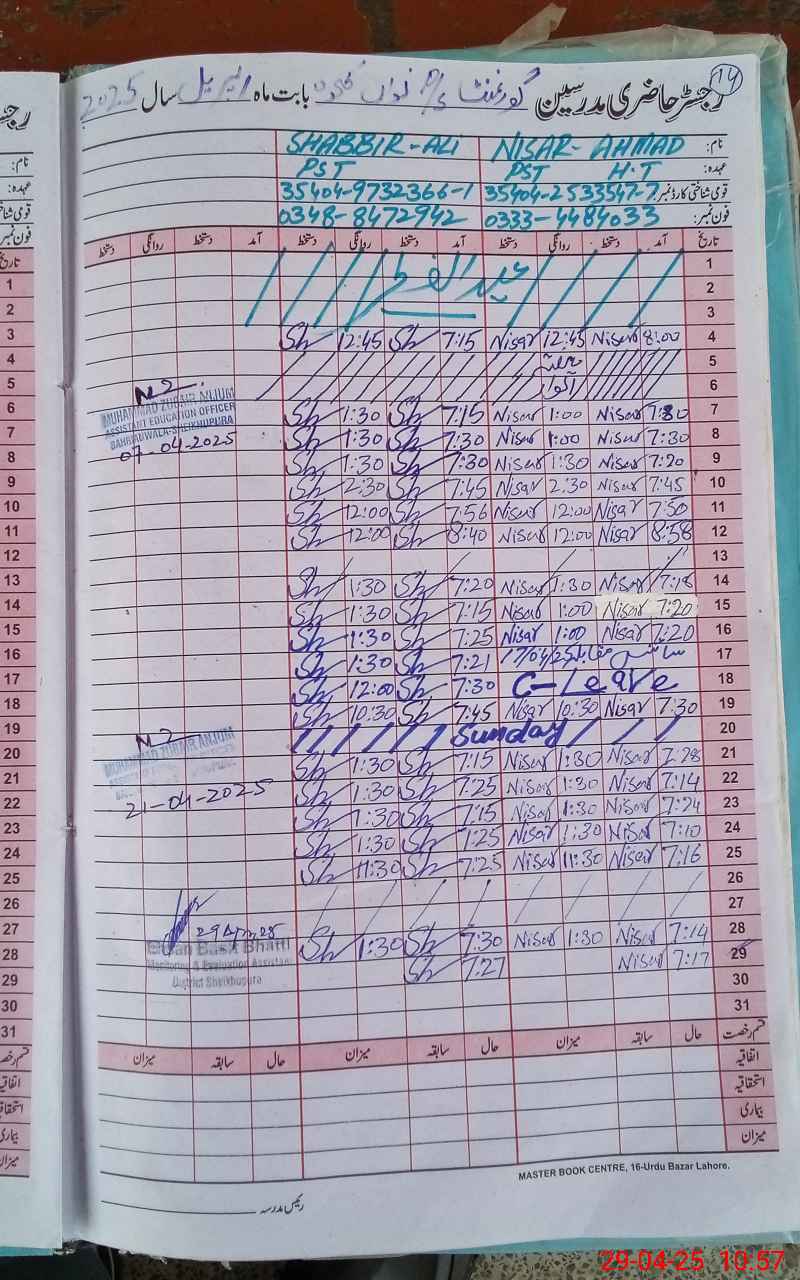 14
رجسٹر حاضری مدرسین گورنمنٹ P/S نواں بابت ماہ اپریل سال 2025
نام: NISAR-AHMAD SHABBIR-ALI
عہدہ: PST H.T PST
قومی شناختی کارڈ نمبر: 35404-2533547-7 35404-9732366-1
فون نمبر: 0333-4484033 0348-8472942
تاریخ آمد دستخط روانگی دستخط آمد دستخط روانگی دستخط آمد دستخط روانگی دستخط
1
2 عید الفطر
3
4 8:00 Nisar 12:45 Nisar 7:15 Sh 12:45 Sh
5
6
7 7:30 Nisar 1:00 Nisar 7:15 Sh 1:30 Sh
8 7:30 Nisar 1:00 Nisar 7:30 Sh 1:30 Sh
9 7:20 Nisar 1:30 Nisar 7:30 Sh 1:30 Sh
10 7:45 Nisar 2:30 Nisar 7:45 Sh 2:30 Sh
11 7:50 Nisar 12:00 Nisar 7:56 Sh 12:00 Sh
12 8:58 Nisar 12:00 Nisar 8:40 Sh 12:00 Sh
13
14 7:18 Nisar 1:30 Nisar 7:20 Sh 1:30 Sh
15 7:20 Nisar 1:00 Nisar 7:15 Sh 1:30 Sh
16 7:20 Nisar 1:00 Nisar 7:25 Sh 1:30 Sh
17 سائنس مقابلہ 17/04/25 7:21 Sh 1:30 Sh
18 C-Leave 7:30 Sh 12:00 Sh
19 7:30 Nisar 10:30 Nisar 7:45 Sh 10:30 Sh
20 Sunday
21 7:28 Nisar 1:30 Nisar 7:15 Sh 1:30 Sh
22 7:14 Nisar 1:30 Nisar 7:25 Sh 1:30 Sh
23 7:24 Nisar 1:30 Nisar 7:15 Sh 1:30 Sh
24 7:10 Nisar 1:30 Nisar 7:25 Sh 1:30 Sh
25 7:16 Nisar 11:30 Nisar 7:25 Sh 11:30 Sh
26
27
28 7:14 Nisar 1:30 Nisar 7:30 Sh 1:30 Sh
29 7:17 Nisar 7:27 Sh
30
31
MUHAMMAD ZUBAIR ANJUM
ASSISTANT EDUCATION OFFICER
BAHRIANWALA-SHEIKHUPURA
07-04-2025
MUHAMMAD ZUBAIR ANJUM
21-04-2025
29 Apr 25
Basit Bhatti
Monitoring & Evaluation Assistant
District Sheikhupura
قسم رخصت حال سابقہ میزان حال سابقہ میزان حال سابقہ میزان
اتفاقیہ
استحقاقیہ
بیماری
میزان
MASTER BOOK CENTRE, 16-Urdu Bazar Lahore.
رئیس مدرسہ
رجس
نام:
عہدہ:
قومی شناختی
فون نمبر
تاریخ
1
2
3
4
5
6
7
8
9
10
11
12
13
14
15
16
17
18
19
20
21
22
23
24
25
26
27
28
29
30
31
قسم رخص
اتفاقیہ
استحقاقیہ
بیماری
میزان
29-04-25 10:57